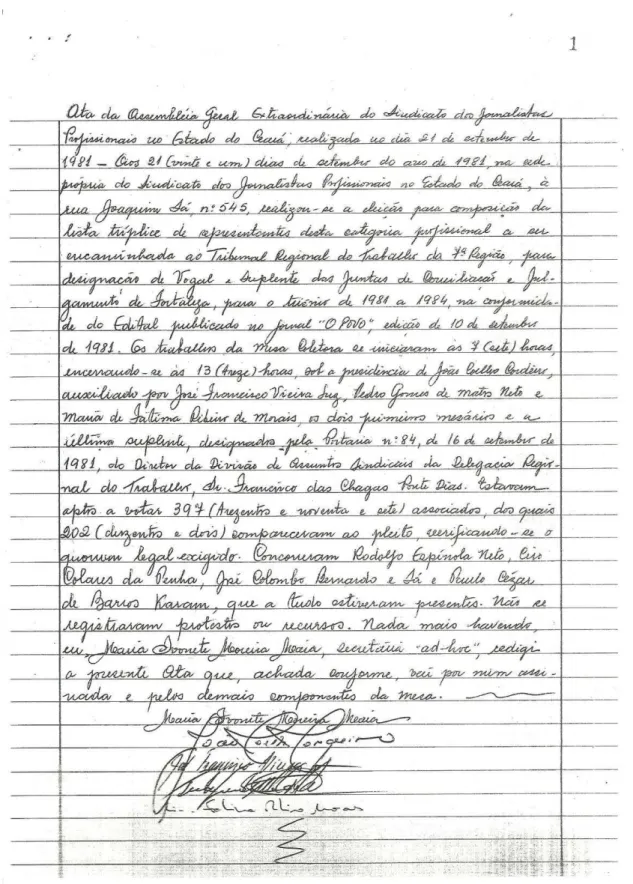 1
Ata da Assembléia Geral Extraordinária do Sindicato dos Jornalistas
Profissionais no Estado do Ceará, realizada no dia 21 de setembro de
1981 — Aos 21 (vinte e um) dias de setembro do ano de 1981, na sede
própria do Sindicato dos Jornalistas Profissionais no Estado do Ceará, à
rua Joaquim Sá, nº 545, realizou-se a eleição para composição da
lista tríplice de representantes desta categoria profissional a ser
encaminhada ao Tribunal Regional do Trabalho da 7ª Região, para
designação de Vogal e Suplente das Juntas de Conciliação e Jul-
gamento de Fortaleza, para o triênio de 1981 a 1984, na conformida-
de do Edital publicado no jornal "O POVO", edição de 10 de setembro
de 1981. Os trabalhos da Mesa Coletora se iniciaram às 7 (sete) horas,
encerrando-se às 13 (treze) horas, sob a presidência de João Coelho
auxiliado por José Francisco Vieira Luz, Pedro Gomes de Matos Neto e
Maria de Fátima Ribeiro de Morais, os dois primeiros mesários e a
última suplente, designados pela Portaria nº 84, de 16 de setembro de
1981, do Diretor da Divisão de Assuntos Sindicais da Delegacia Regio-
nal do Trabalho, Dr. Francisco das Chagas Ponte Dias. Estavam
aptos a votar 397 (trezentos e noventa e sete) associados, dos quais
202 (duzentos e dois) compareceram ao pleito, verificando-se o
quorum legal exigido. Concorreram Rodolfo Espínola Neto, Ciro
Colares da Penha, José Colombo Bernardo e Sá e Paulo Cézar
de Barros Karam, que a tudo estiveram presentes. Não se
registraram protestos ou recursos. Nada mais havendo,
eu, Maria Ivonete Moreira Maia, secretária "ad-hoc", redigi
a presente Ata que, achada conforme, vai por mim assi-
nada e pelos demais componentes da mesa.
Maria Ivonete Moreira Maia